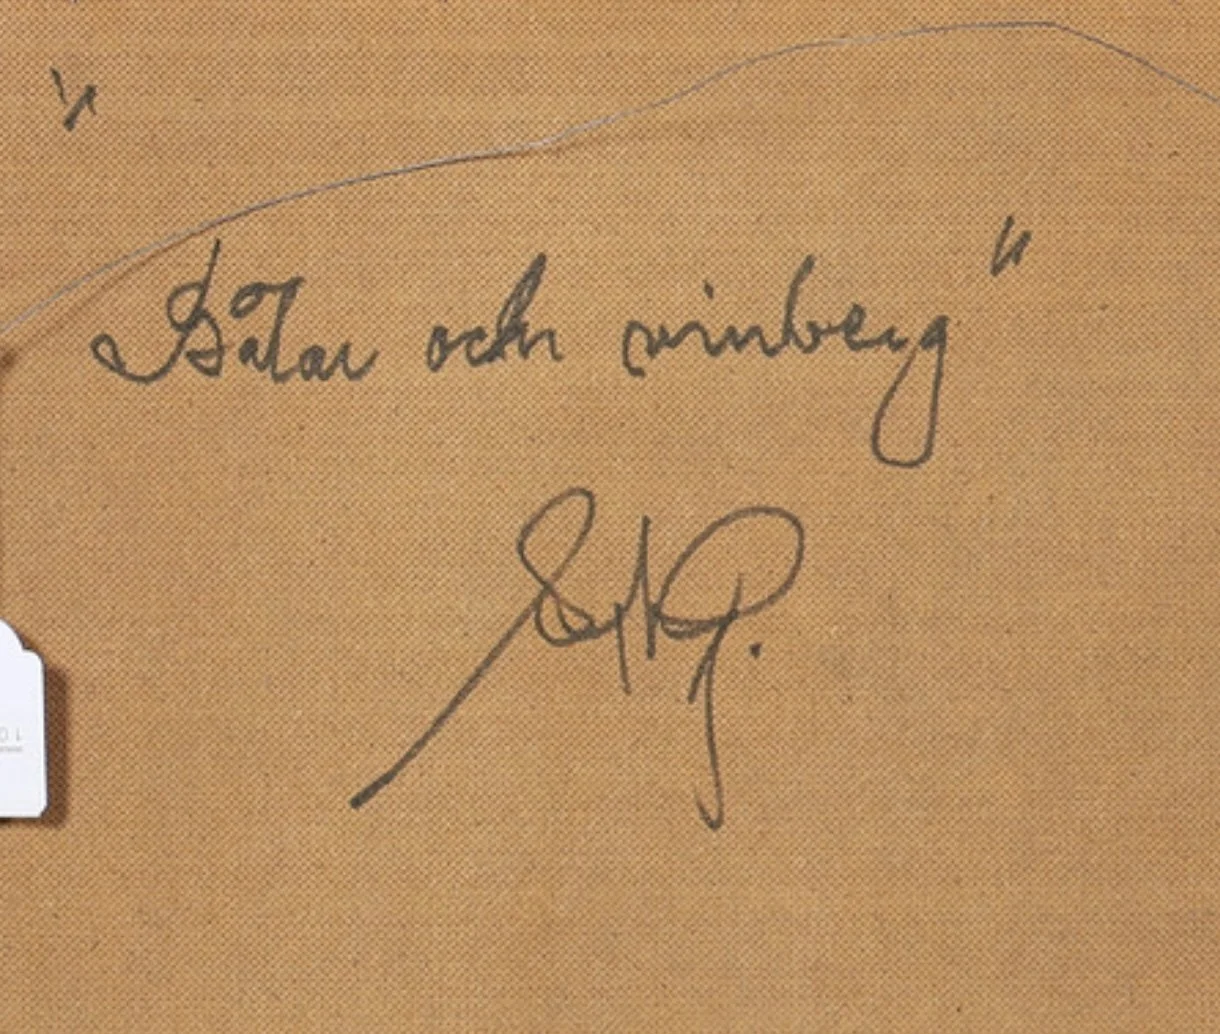 "Båtar och vinberg"